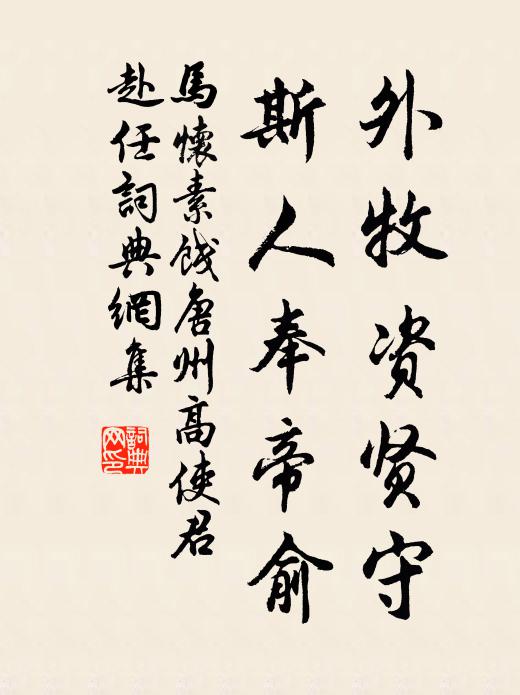 外牧资贤守
斯人奉帝俞
馬懷素餞唐州高使君
赴任詞典網集
詞典網印